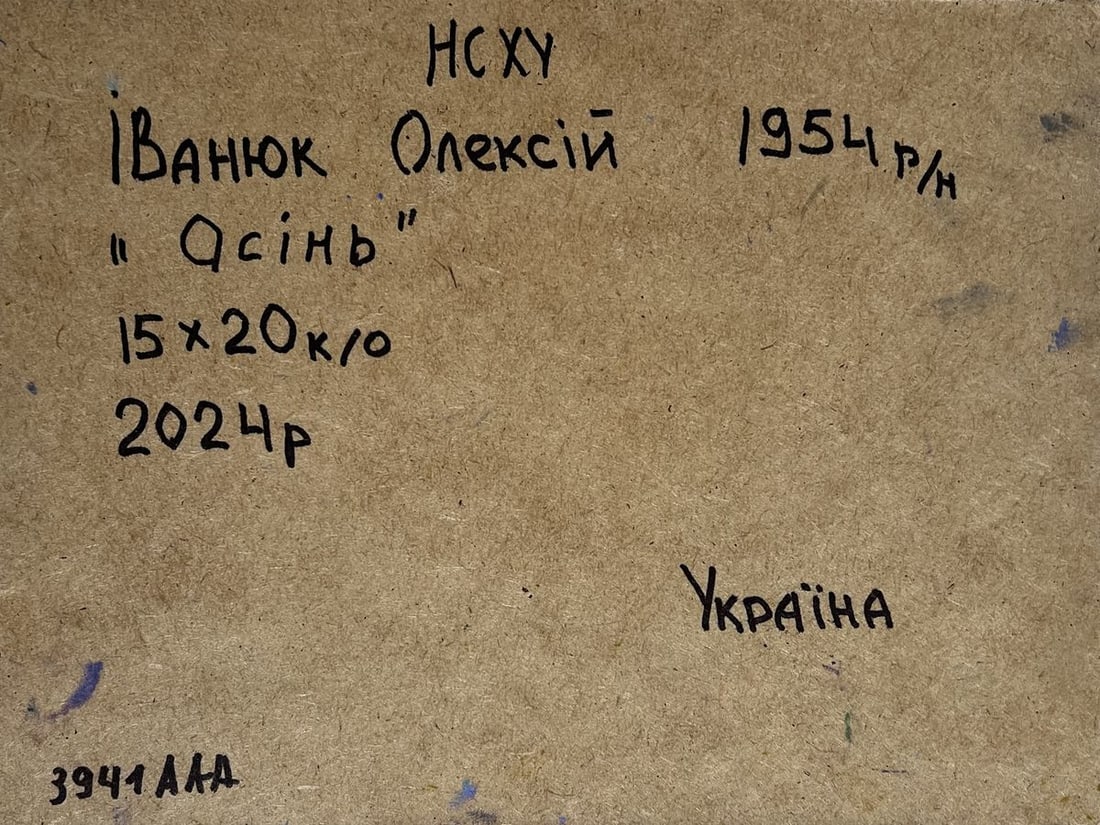 НСХУ
Іванюк Олексій 1954 р/н
„ Осінь"
15х20 к/о
2024р
Україна
3941 ААА